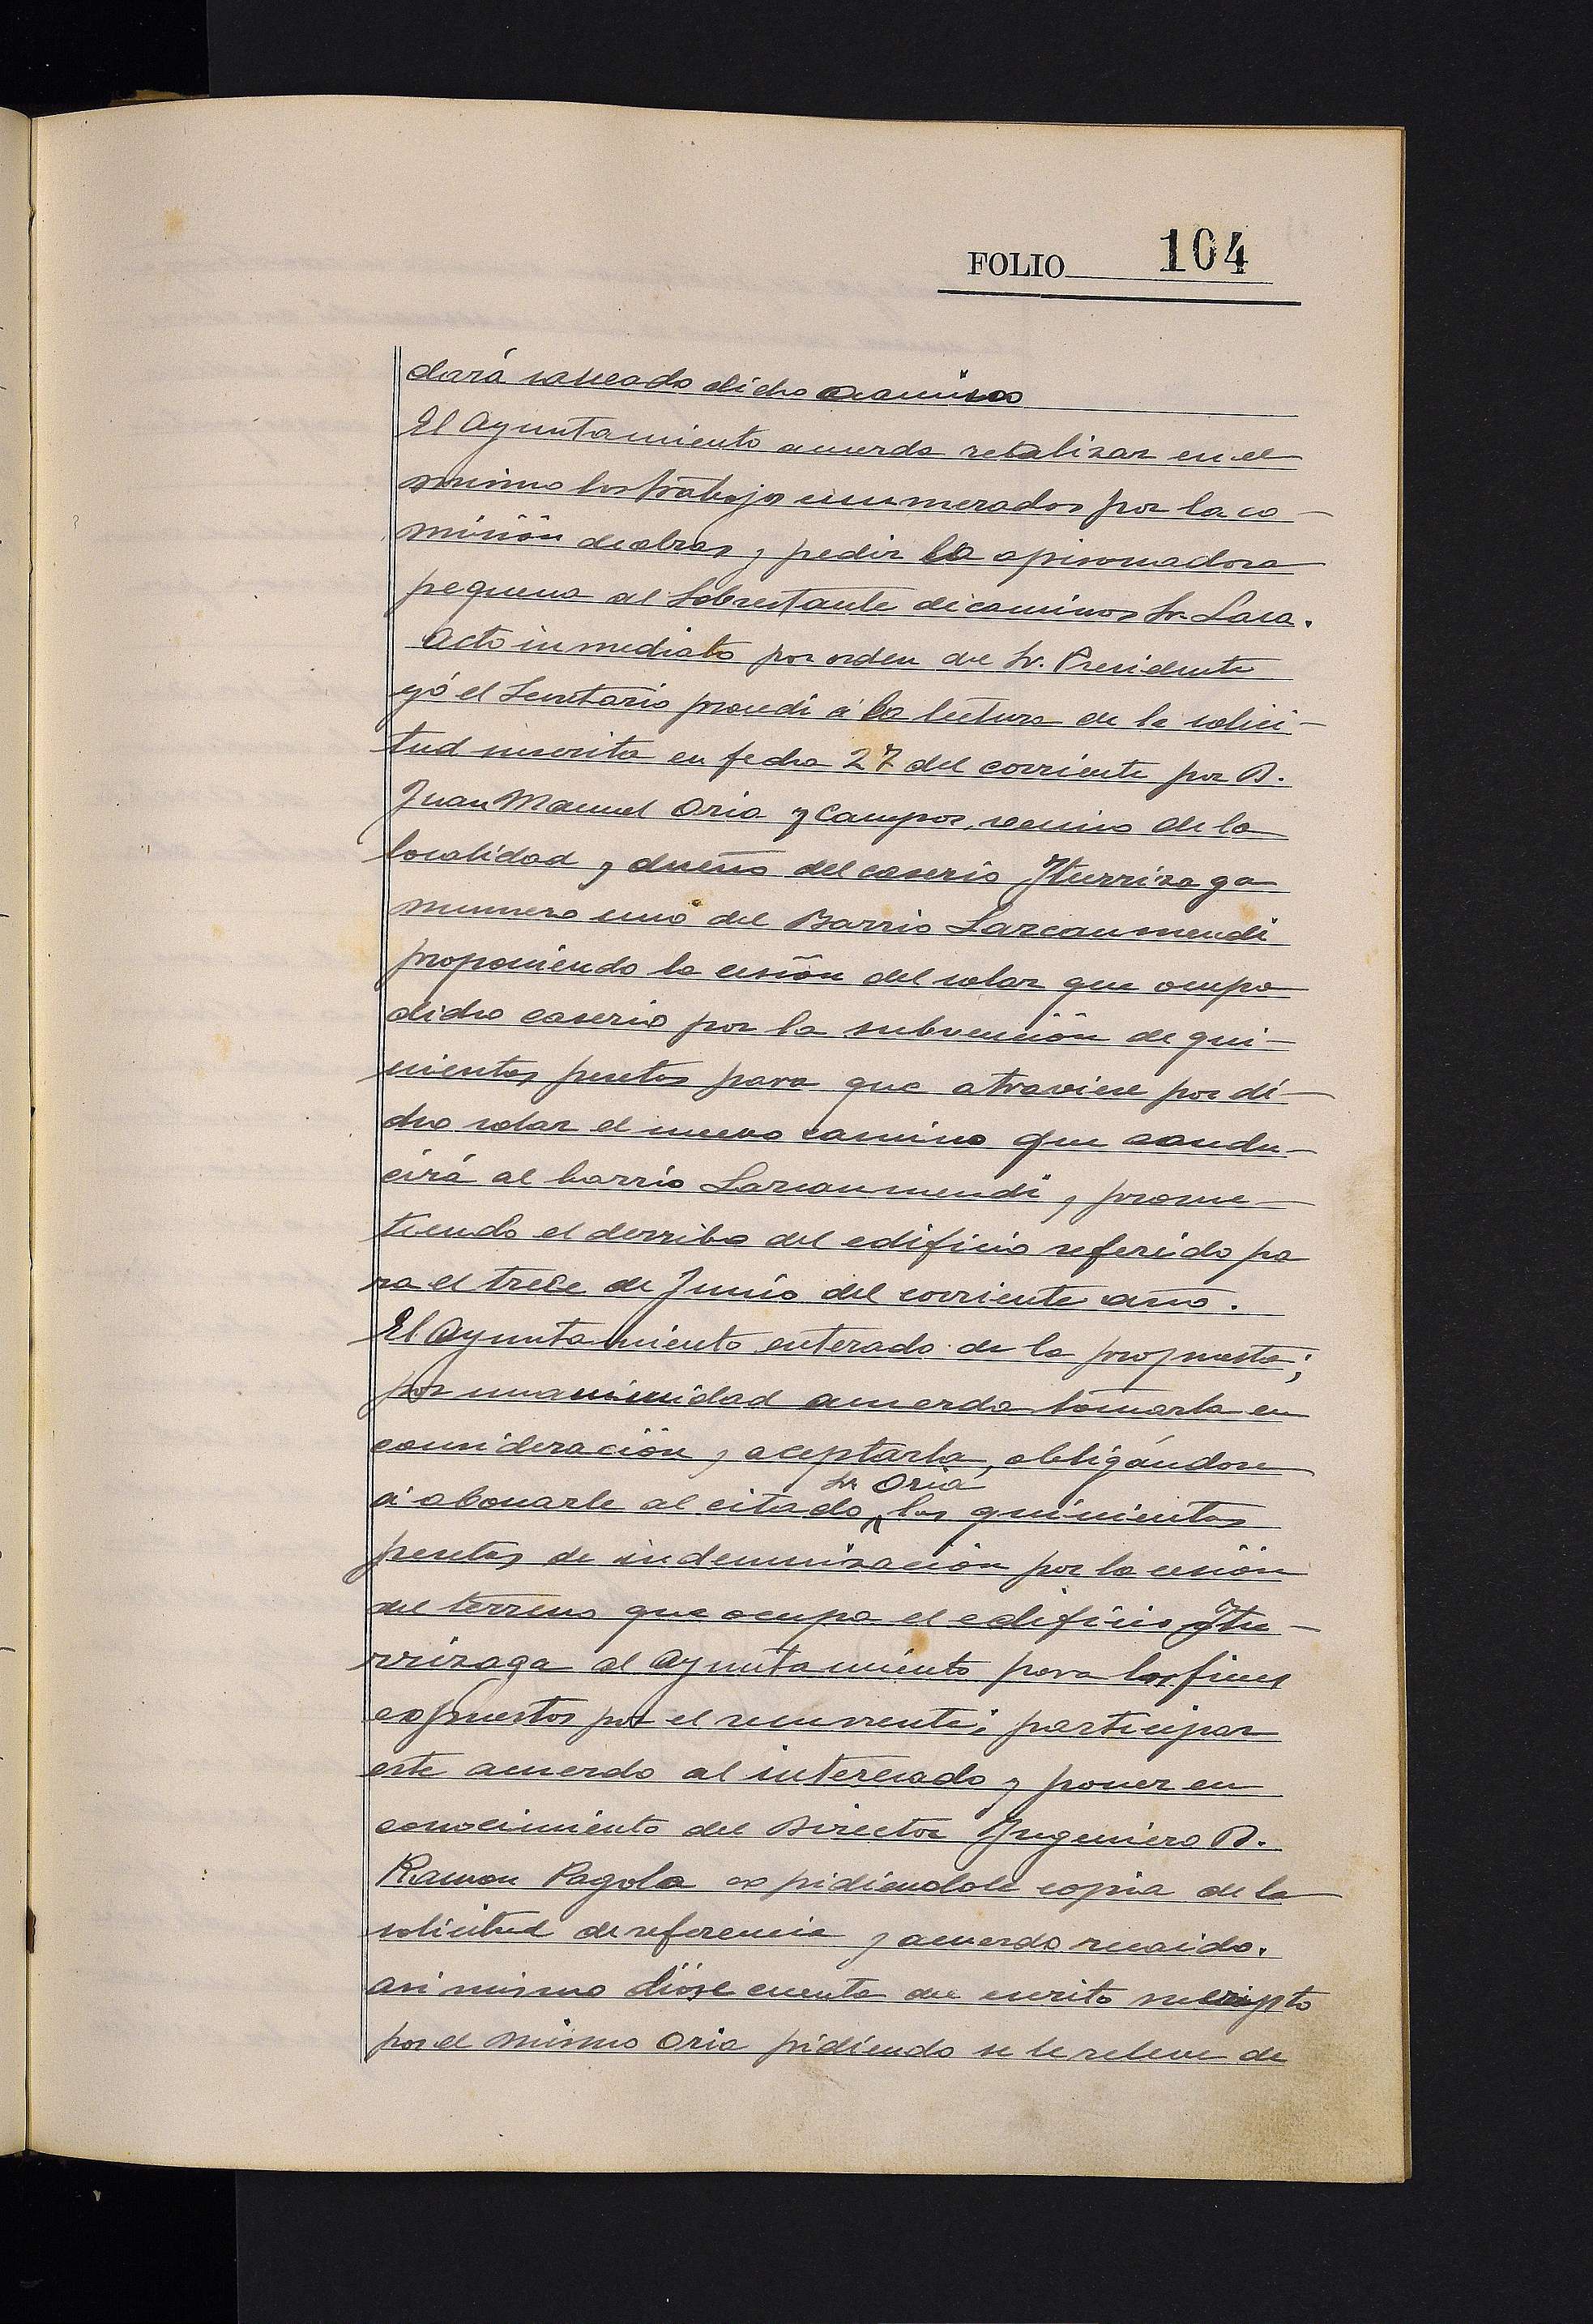 FOLIO 104
dará saneado dicho camino
El Ayuntamiento acuerda realizar en el
mismo los trabajos enumerados por la co-
misión de obras y pedir la apisonadora
pequeña al Sobrestante de caminos Sr. Lasa.
Acto inmediato por orden del Sr. Presidente
yó el Secretario procedi á la lectura de la solici-
tud suscrita en fecha 27 del corriente por D.
Juan Manuel Oria y Campos, vecino de la
localidad y dueño del caserio Iturrizaga
numero uno del Barrio Larcaumendi
proponiendo la cesión del solar que ocupa
dicho caserio por la subvención de qui-
nientas pesetas para que atraviese por di-
cho solar el nuevo camino que condu-
cirá al barrio Larcaumendi y prome-
tiendo el derribo del edificio referido pa
ra el trece de Junio del corriente año.
El Ayuntamiento enterado de la propuesta;
por unanimidad acuerda tomarla en
consideración y aceptarla, obligándose
á abonarle al citado Sr Oria las quinientas
pesetas de indemnización por la cesión
del terreno que ocupa el edificio Itu-
rrizaga al Ayuntamiento para los fines
expuestos por el recurrente; participar
este acuerdo al interesado y poner en
conocimiento del Director Ingeniero D.
Ramon Pagola expidiendole copia de la
solicitud de referencia y acuerdo recaido.
asi mismo dióse cuenta del escrito suscripto
por el mismo Oria pidiendo se le releve de